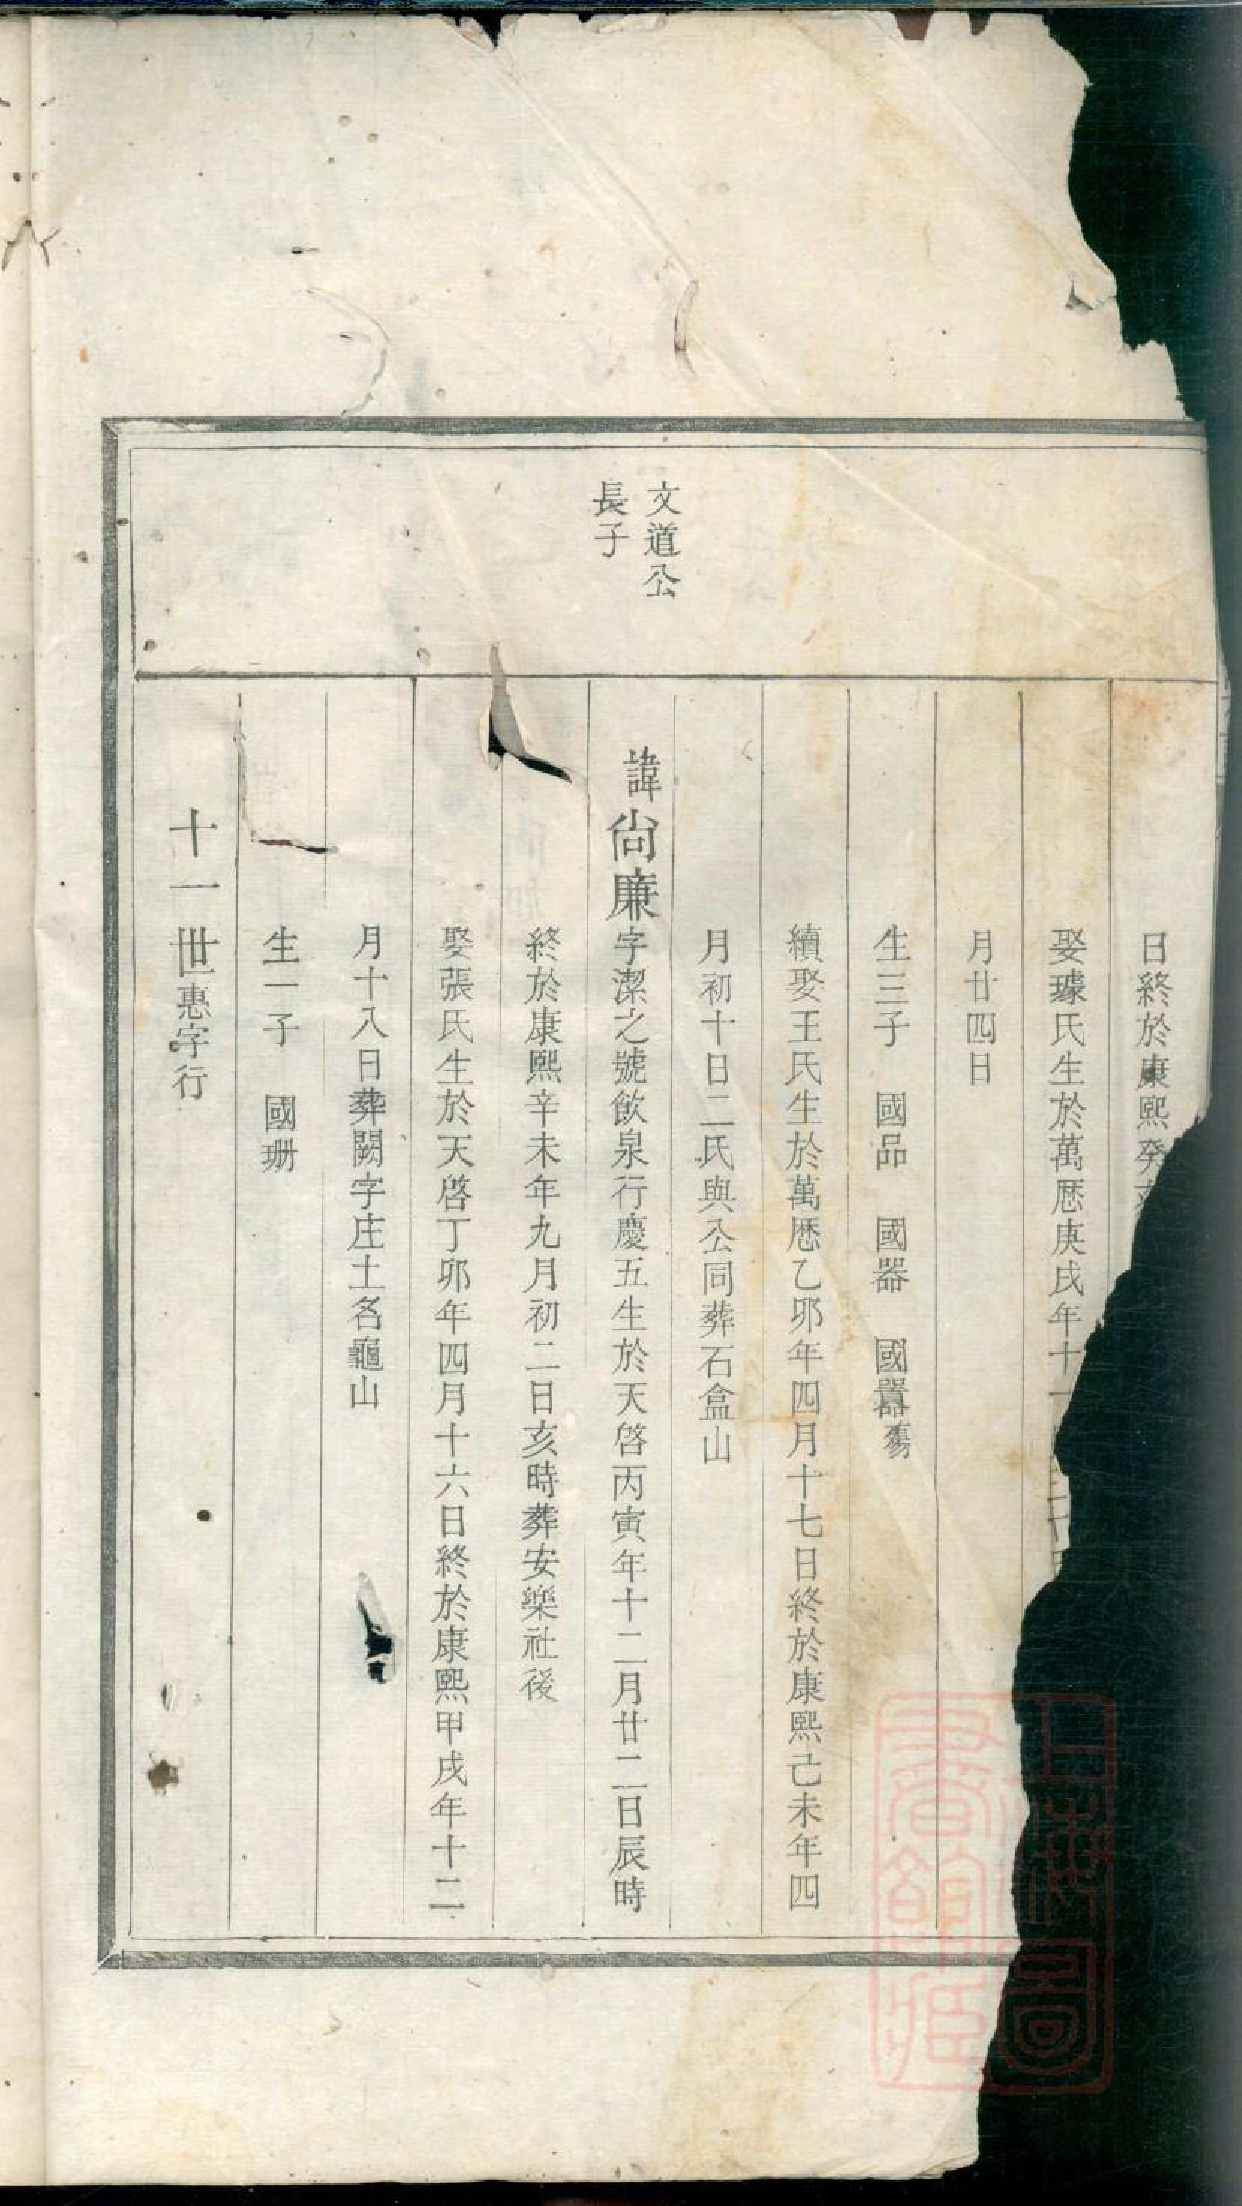 日終於康熙癸
娶璩氏生於萬歷庚戌年十一
月廿四日
生三子　國品　國器　國囂殤
續娶王氏生於萬歷乙卯年四月十七日終於康熙己未年四
月初十日二氏與公同葬石盒山
文道公
長子
諱尙廉字潔之號飲泉行慶五生於天啓丙寅年十二月廿二日辰時
終於康熙辛未年九月初二日亥時葬安樂社後
娶張氏生於天啓丁卯年四月十六日終於康熙甲戌年十二
月十八日葬闕字庄土名龜山
生一子　國珊
十一世惠字行
上海圖
書館藏